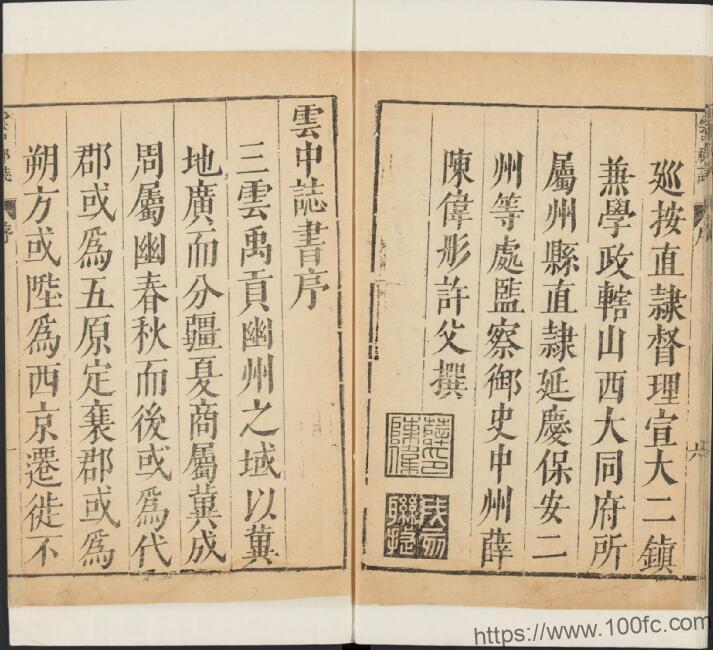 雲中郡誌 序 六
廵按直隷督理宣大二鎮
兼學政轄山西大同府所
屬州縣直隷延慶保安二
州等處監察御史中州薛
陳偉彤許父撰
雲中誌書序
三雲禹貢幽州之域以冀
地廣而分疆夏商屬冀成
周屬幽春秋而後或爲代
郡或爲五原定襄郡或爲
朔方或陞爲西京遷徙不
https://www.100fc.com